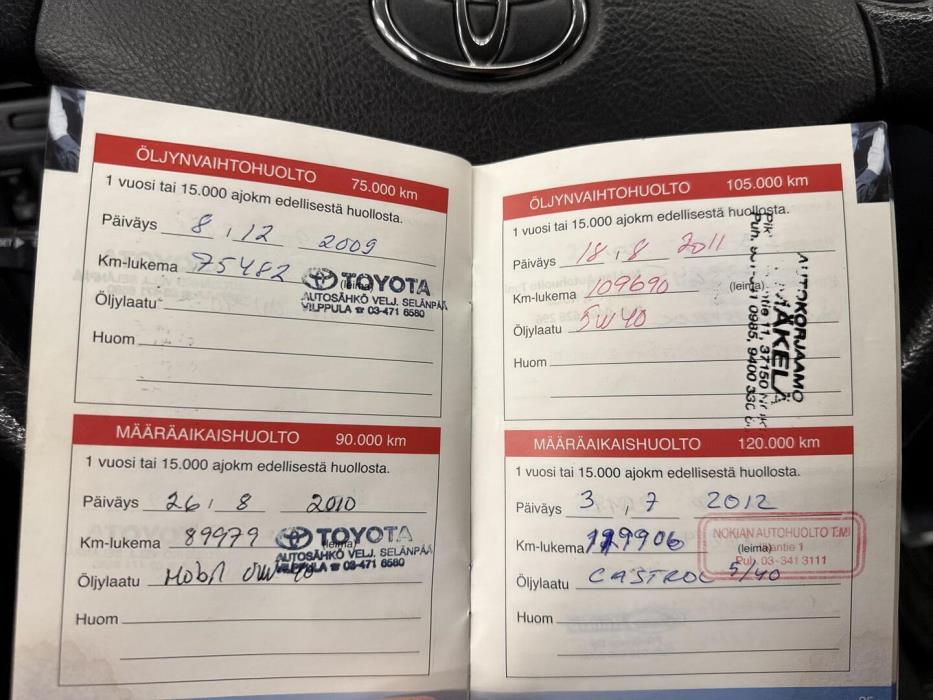 ÖLJYNVAIHTOHUOLTO 75.000 km
1 vuosi tai 15.000 ajokm edellisestä huollosta.
Päiväys 8 , 12 2009
Km-lukema 75482
(leima)
TOYOTA
AUTOSÄHKÖ VELJ. SELÄNPÄÄ
VILPPULA ☎ 03-471 6580
Öljylaatu
Huom
MÄÄRÄAIKAISHUOLTO 90.000 km
1 vuosi tai 15.000 ajokm edellisestä huollosta.
Päiväys 26, 8 2010
Km-lukema 89979
(leima)
TOYOTA
AUTOSÄHKÖ VELJ. SELÄNPÄÄ
VILPPULA ☎ 03-471 6580
Öljylaatu Mobil 0W 40
Huom
ÖLJYNVAIHTOHUOLTO 105.000 km
1 vuosi tai 15.000 ajokm edellisestä huollosta.
Päiväys 18 , 8 2011
Km-lukema 109690
(leima)
Öljylaatu 5W40
Huom
AUTOKORJAAMO
MÄKELÄ
11, 37150
Puh. 0985, 9400
MÄÄRÄAIKAISHUOLTO 120.000 km
1 vuosi tai 15.000 ajokm edellisestä huollosta.
Päiväys 3 , 7 2012
Km-lukema 119906
NOKIAN AUTOHUOLTO T:MI
(leima) 1
Puh. 03-341 3111
Öljylaatu CASTROL 5/40
Huom